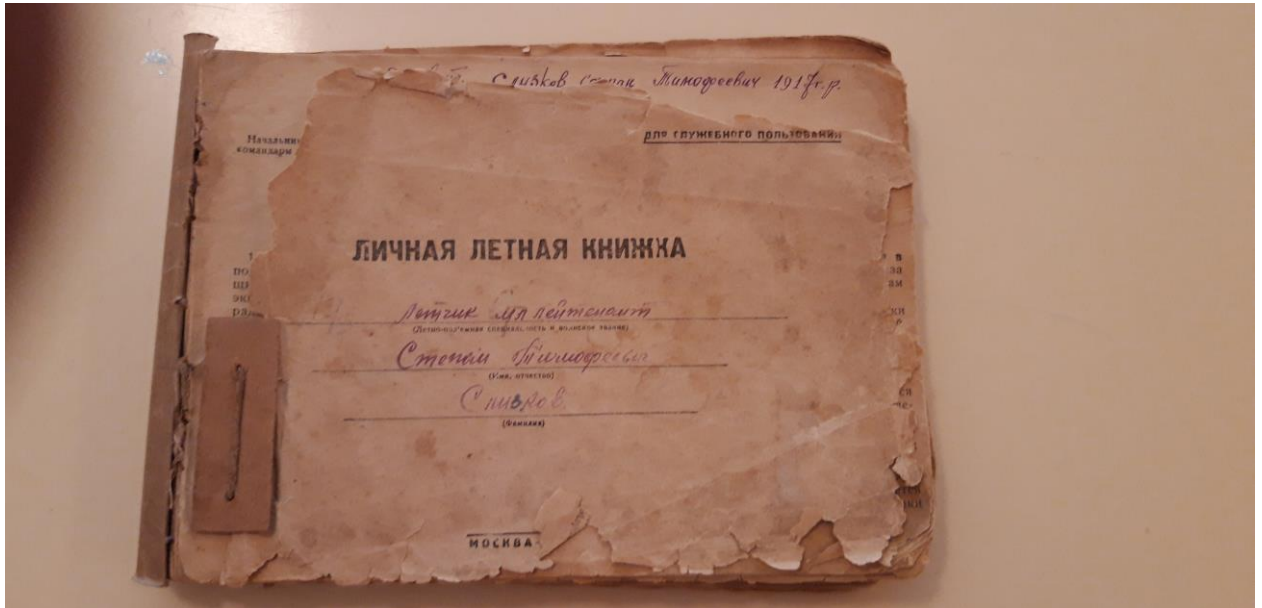 Слизков Степан Тимофеевич 1917г.р.
ДЛЯ СЛУЖЕБНОГО ПОЛЬЗОВАНИЯ
Начальник
командиры
ЛИЧНАЯ ЛЕТНАЯ КНИЖКА
Летчик мл лейтенант
(Летно-подъемная специальность и воинское звание)
Степан Тимофеевич
(Имя, отчество)
Слизков
(Фамилия)
МОСКВА